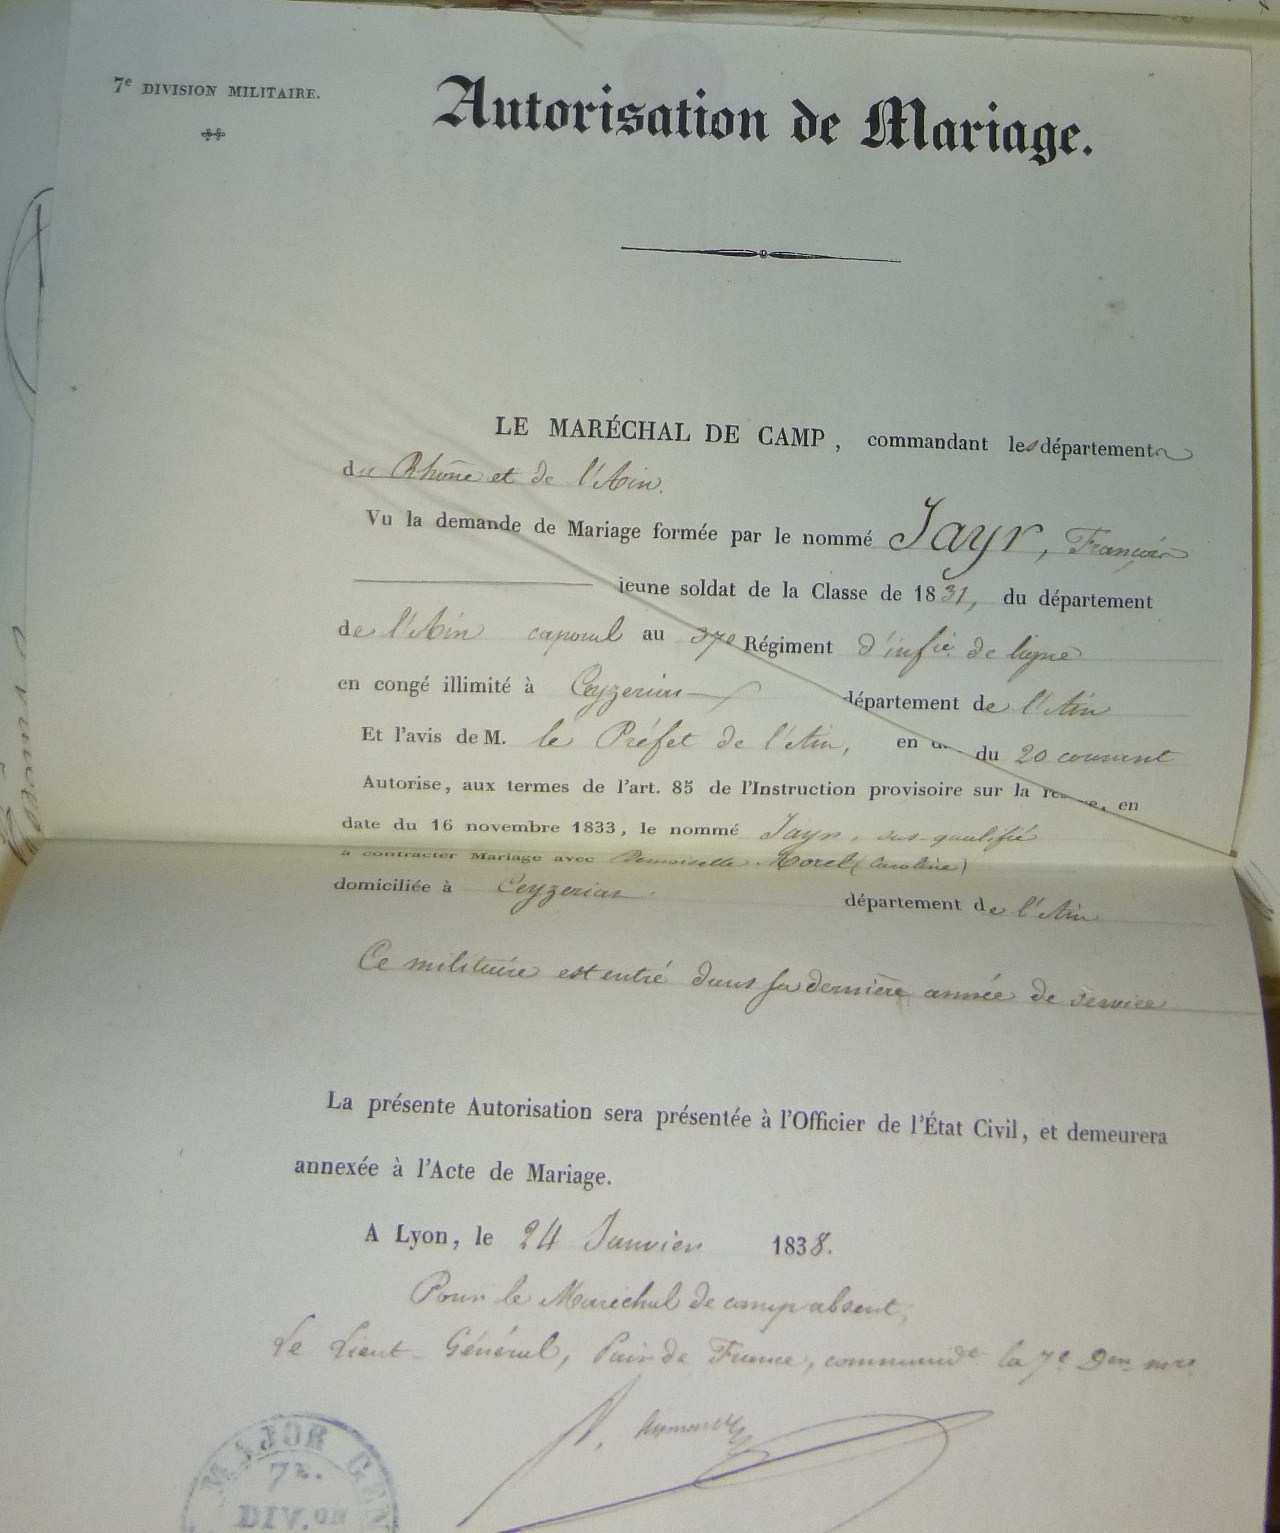 7e DIVISION MILITAIRE.
Autorisation de Mariage.
LE MARÉCHAL DE CAMP, commandant les départements
du Rhône et de l'Ain.
Vu la demande de Mariage formée par le nommé Jayr, François
jeune soldat de la Classe de 1831, du département
de l'Ain caporal au 37e Régiment d'infie de ligne
en congé illimité à Ceyzeriat département de l'Ain
Et l'avis de M. le Préfet de l'Ain, en du 20 courant
Autorise, aux termes de l'art. 85 de l'Instruction provisoire sur la en
date du 16 novembre 1833, le nommé Jayr, sus-qualifié
à contracter Mariage avec Demoiselle Morel (Caroline)
domiciliée à Ceyzeriat département de l'Ain
Ce militaire est entré dans sa dernière année de service
La présente Autorisation sera présentée à l'Officier de l'État Civil, et demeurera
annexée à l'Acte de Mariage.
A Lyon, le 24 Janvier 1838.
Pour le Maréchal de camp absent,
Le Lieut-Général, Pair de France, commandt la 7e Don mre
MAJOR GEN
7E.
DIV.ON